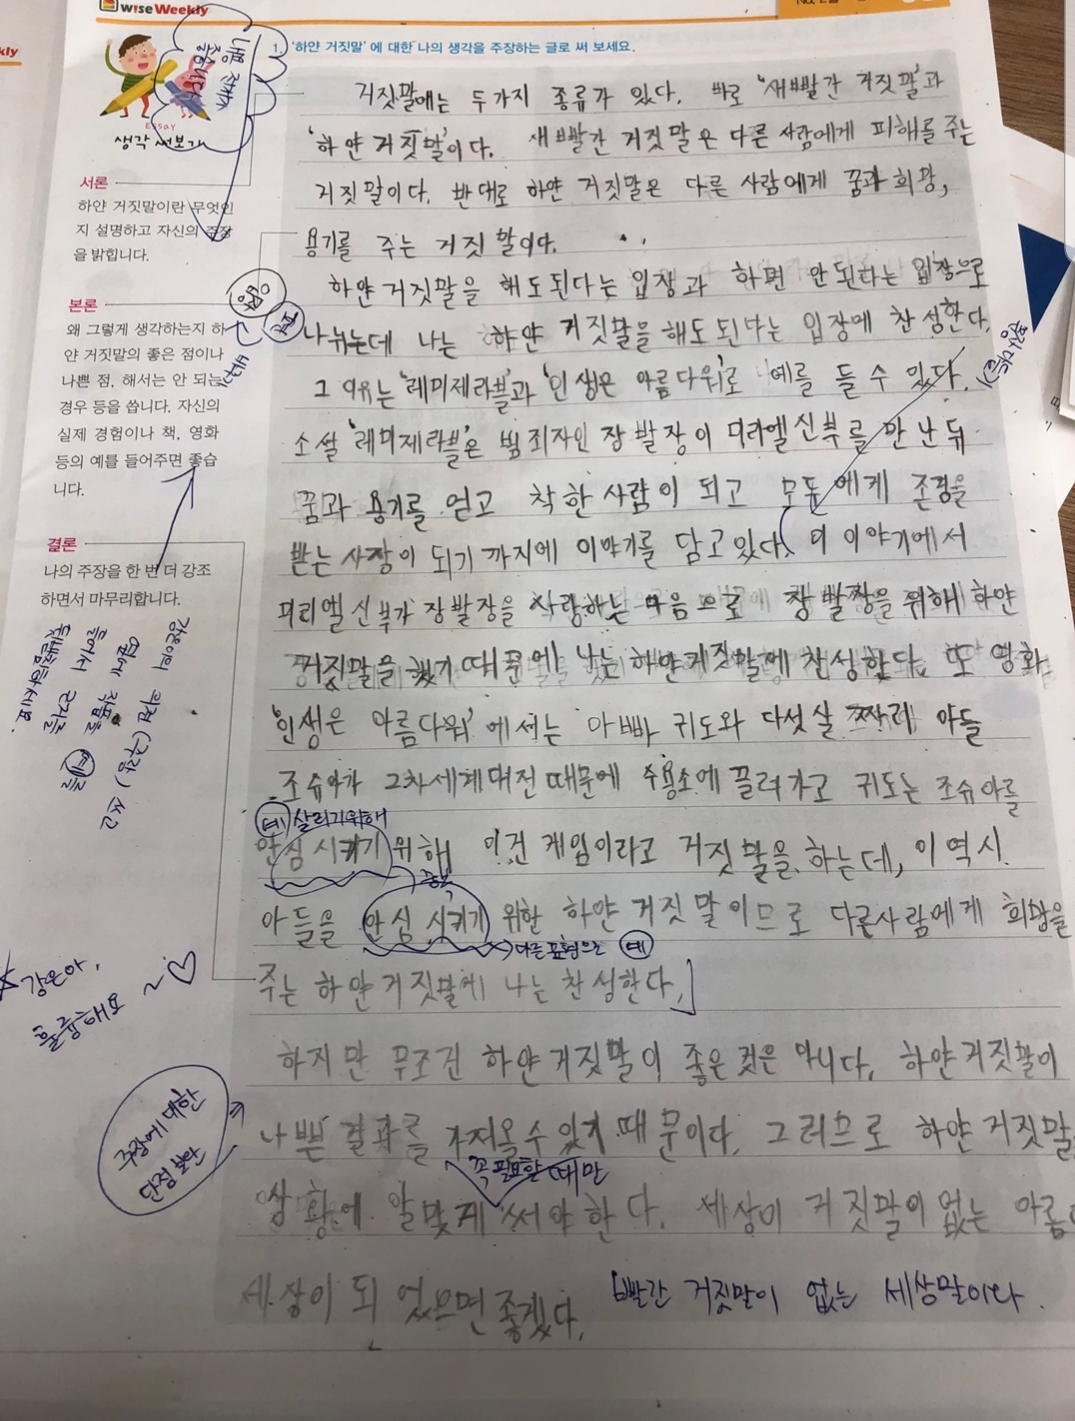 wise Weekly
1. '하얀 거짓말'에 대한 나의 생각을 주장하는 글로 써 보세요.
Essay
생각 써보기
서론
하얀 거짓말이란 무엇인
지 설명하고 자신의 주장
을 밝힙니다.
본론
왜 그렇게 생각하는지 하
얀 거짓말의 좋은 점이나
나쁜 점, 해서는 안 되는
경우 등을 씁니다. 자신의
실제 경험이나 책, 영화
등의 예를 들어주면 좋습
니다.
결론
나의 주장을 한 번 더 강조
하면서 마무리합니다.
거짓말에는 두가지 종류가 있다. 바로 '새빨간 거짓말'과
'하얀 거짓말'이다. 새빨간 거짓말은 다른 사람에게 피해를 주는
거짓말이다. 반대로 하얀 거짓말은 다른 사람에게 꿈과 희망,
용기를 주는 거짓말이다.
하얀 거짓말을 해도된다는 입장과 하면 안된다는 입장으로
나뉘는데 나는 하얀 거짓말을 해도 된다는 입장에 찬성한다.
그 이유는 '레미제라블'과 '인생은 아름다워'로 예를 들 수 있다.
소설 '레미제라블'은 범죄자인 장발장이 미리엘신부를 만난뒤
꿈과 용기를 얻고 착한 사람이 되고 모두에게 존경을
받는 사장이 되기 까지에 이야기를 담고있다. 이 이야기에서
미리엘신부가 장발장을 사랑하는 마음으로 장발장을 위해 하얀
거짓말을 했기 때문에 나는 하얀거짓말에 찬성한다. 또 영화
'인생은 아름다워'에서는 아빠 귀도와 다섯살 짜리 아들
조슈아가 2차세계대전 때문에 수용소에 끌려가고 귀도는 조슈아를
예 살리기위해
안심시키기 위해 이건 게임이라고 거짓말을 하는데, 이 역시
중복
아들을 안심 시키기 위한 하얀 거짓말이므로 다른사람에게 희망을
다른 표현으로 예
주는 하얀거짓말에 나는 찬성한다.
하지만 무조건 하얀거짓말이 좋은 것은 아니다. 하얀거짓말이
나쁜 결과를 가져올수있기 때문이다. 그러므로 하얀 거짓말
꼭 필요할 때만
상황에 알맞게 써야한다. 세상이 거짓말이 없는
세상이 되었으면 좋겠다.
빨간 거짓말이 없는 세상말이야.
강은이의 의견(주장) 쓰고
옆에 책을
들어서 근거를 예를
뒷받침하시오.
강은아,
훌륭해요 ~♡
주장에 대한
단점 보완